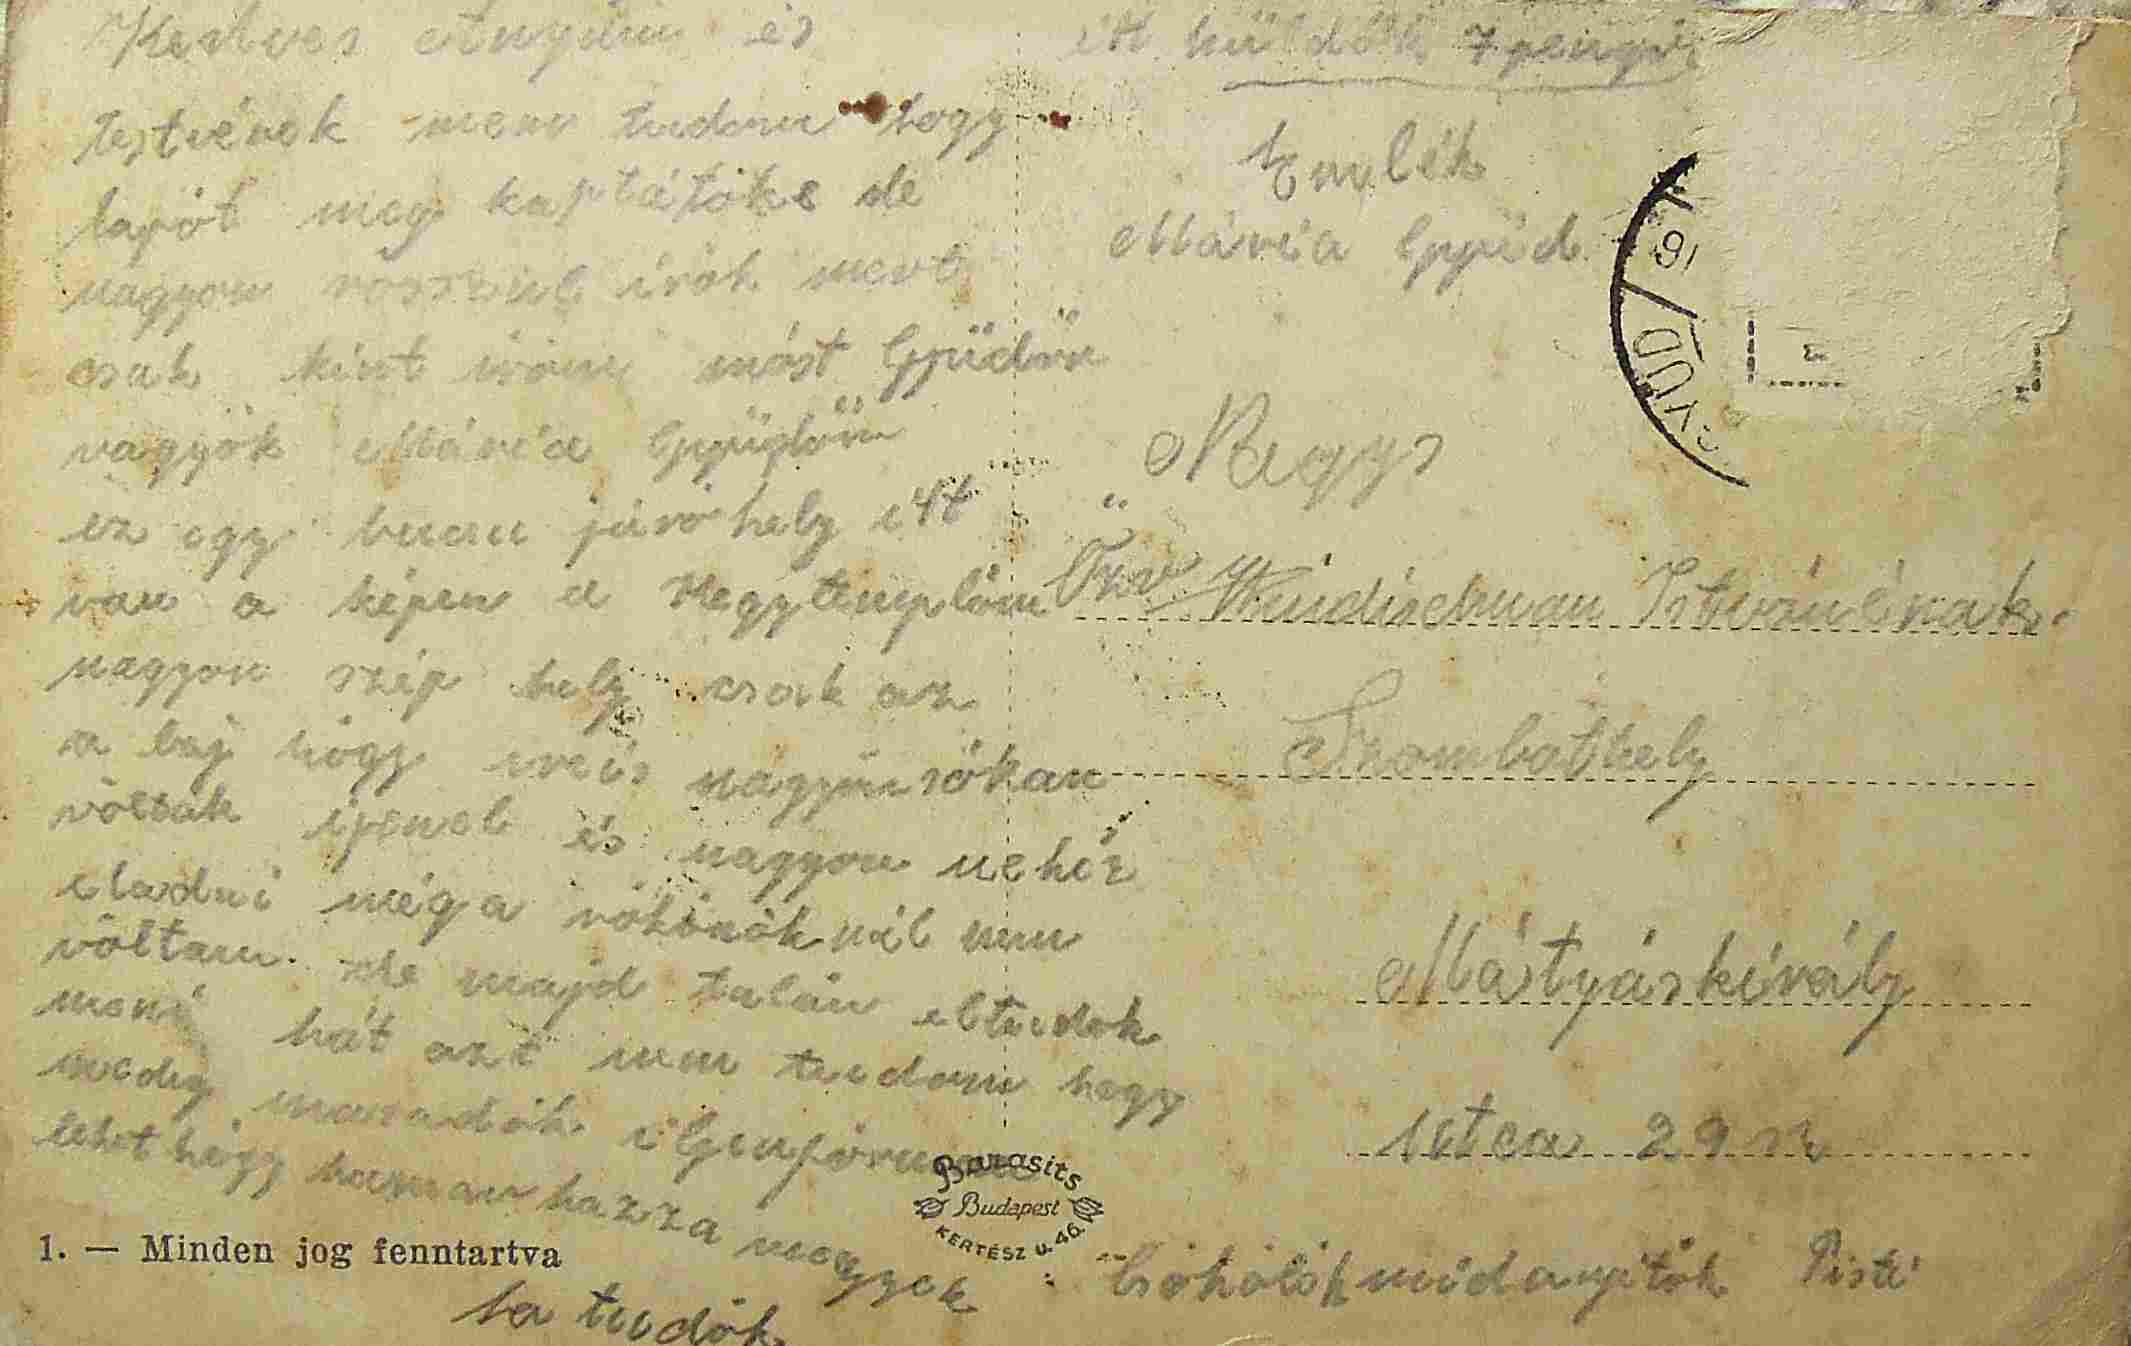 Kedves Anyám és
testvérek nem tudom hogy
lapöt meg kaptátöke de
nagyon rosszul irok mert
csak kint irom möst Gyüdön
vagyök Mária Gyüdön
ez egy bucsu járó hely itt
van a képen a Hegytemplöm
nagyon szép hely csak az
a baj högy nagyön sökan
völtak és nagyon nehéz
eladni még a nem
völtam de majd talán eltudok
meni hát azt nem tudom hogy
medig maradök
lehet högy hamar hazza megyek
ha tudök
itt küldök 7 pengö
Emlék
Mária Gyüd
GYÜD
Nagys
Özv Windischman Istvánénak
Szombathely
Mátyáskirály
utca 29 sz
Csököl mindanyitök Pisti
Barasits
Budapest
KERTÉSZ U. 46.
1. — Minden jog fenntartva